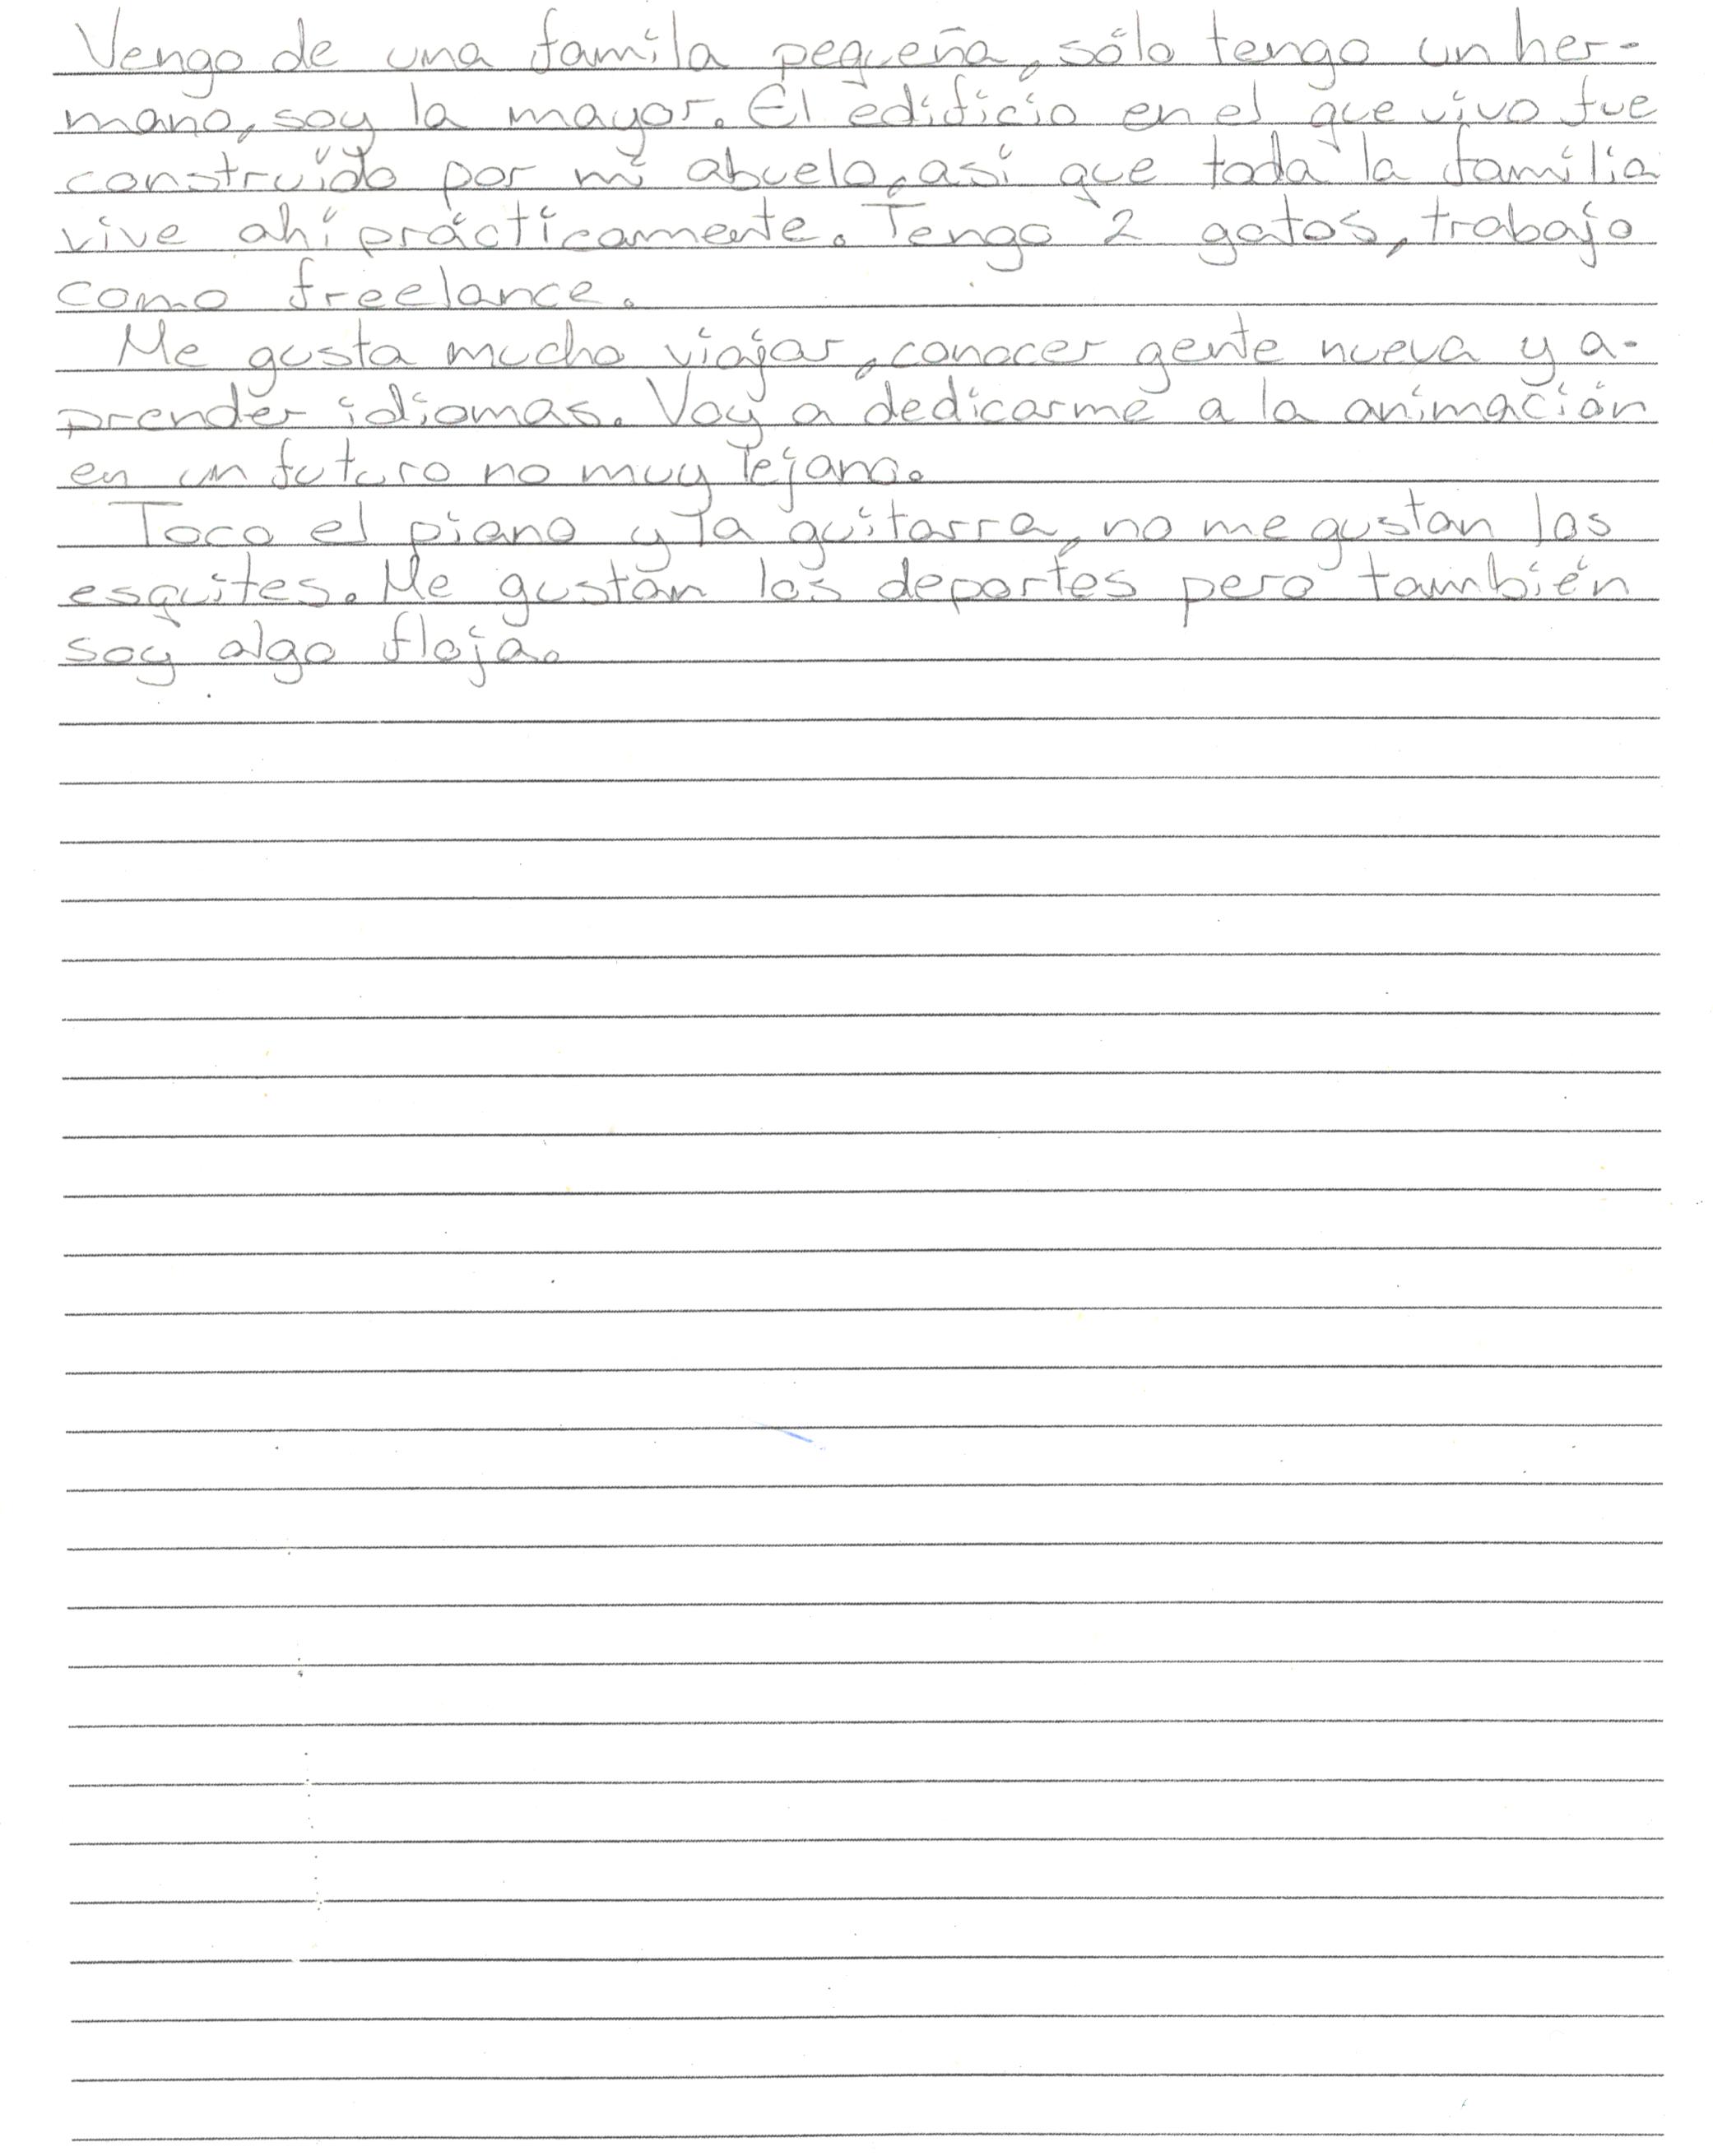 Vengo de una famila pequeña, sólo tengo un her-
mano, soy la mayor. El edificio en el que vivo fue
construido por mi abuelo, así que toda la familia
vive ahí prácticamente. Tengo 2 gatos, trabajo
como freelance.
Me gusta mucho viajar, conocer gente nueva y a-
prender idiomas. Voy a dedicarme a la animación
en un futuro no muy lejano.
Toco el piano y la guitarra, no me gustan los
esquites. Me gustan los deportes pero también
soy algo floja.